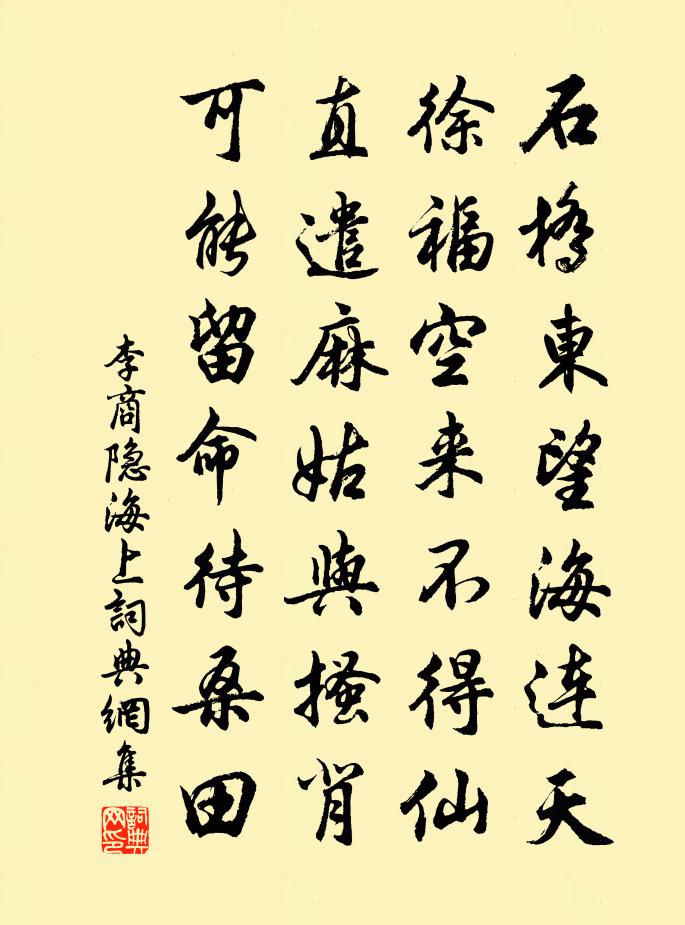 石橋東望海連天
徐福空来不得仙
直遣麻姑與搔背
可能留命待桑田
李商隐海上詞典網集
詞典
网印